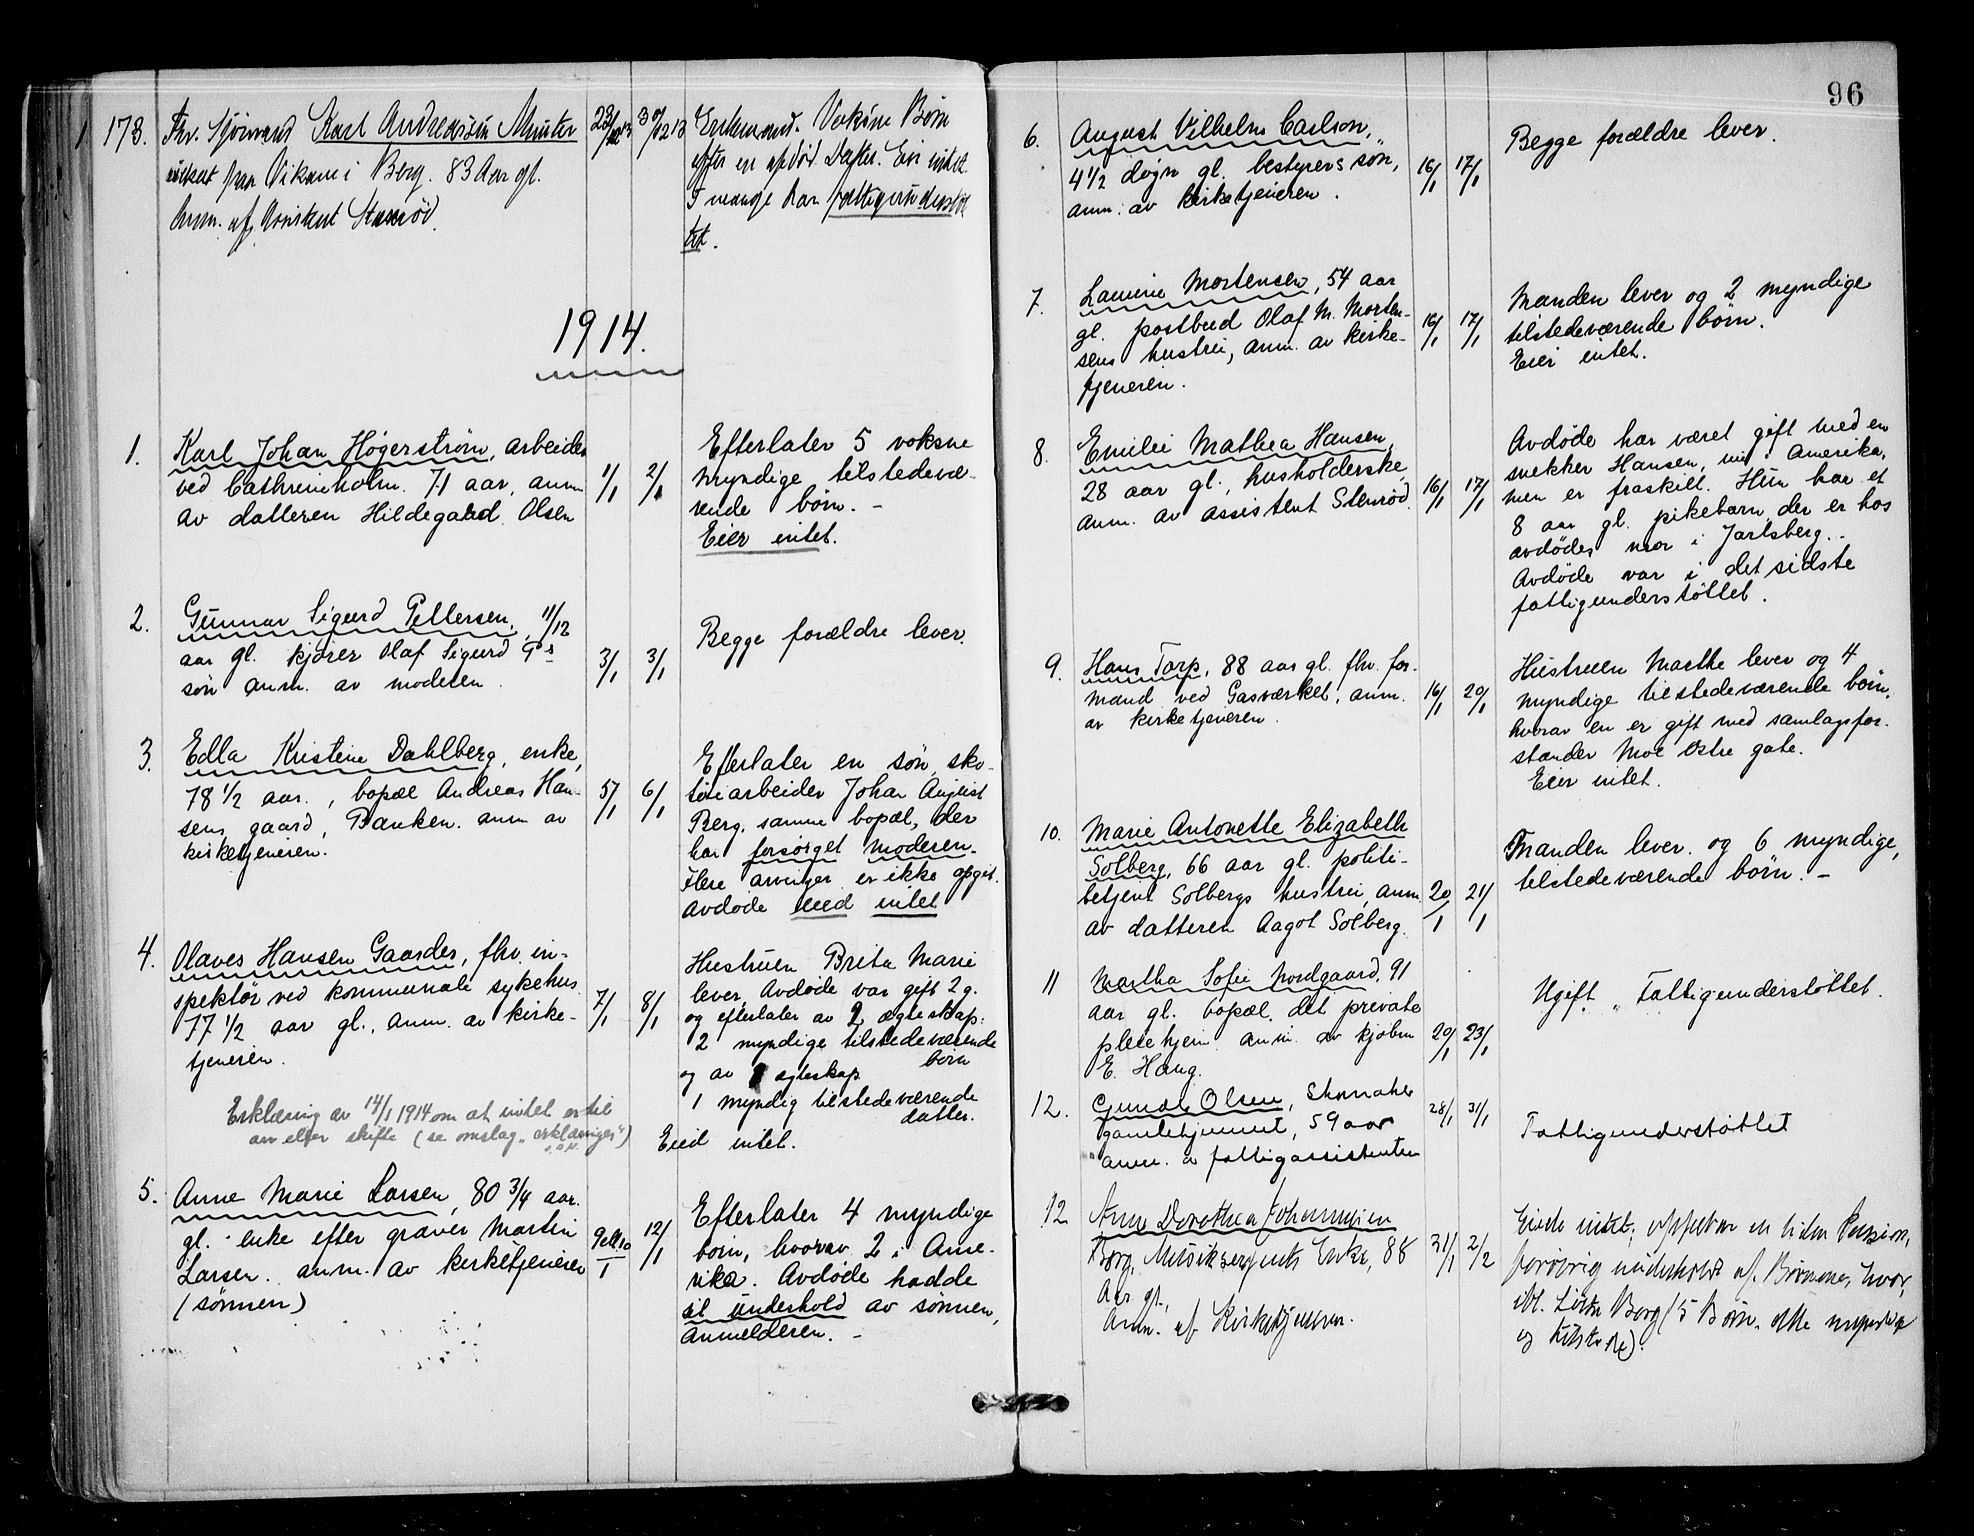 96
178. Fhv. Sjömand Karl Andreassen Munter
fra Vikane i Berg. 83 Aar gl.
Anm. af Assistent Stenrød.
23/12 13
30/12 13
Enkemand. Voksne Børn
efter en afdød Datter. Eier intet.
I mange Aar fattigunderstøt
tet.
1914.
1. Karl Johan Högerström, arbeider
ved Cathrineholm. 71 aar, anm
av datteren Hildegard Olsen
1/1
2/1
Efterlater 5 voksne
myndige tilstedevæ-
rende børn. -
Eier intet.
2. Gunnar Sigurd Pettersen, 11/12
aar gl. kjører Olaf Sigurd P's
søn anm. av moderen.
3/1
3/1
Begge forældre lever.
3. Edla Kristine Dahlberg, enke,
78 1/2 aar., bopæl Andreas Han-
sens gaard, Banken. anm av
kirketjeneren.
5/1
6/1
Efterlater en søn, sko-
töiarbeider Johan August
Berg, samme bopæl, der
har forsørget moderen.
Flere arvinger er ikke opgit.
Avdøde eied intet
4. Olaves Hansen Gaarder, fhv. in-
spektør ved kommunale sykehus
77 1/2 aar gl., anm. av kirke-
tjeneren.
7/1
8/1
Hustruen Brita Marie
lever, Avdøde var gift 2 g.
og efterlater av 2 ægteskap:
2 myndige tilstedeværende
børn
og av 1 ægteskap
1 myndig tilstedeværende
datter.
Eied intet.
Erklæring av 14/1 1914 om at intet er til
arv eller skifte (se omslag „erklæringer"
5. Anne Marie Larsen, 80 3/4 aar.
gl. enke efter graver Martin
Larsen. anm. av kirketjeneren
(sønnen)
9 ell 10/1
12/1
Efterlater 4 myndige
børn, hvorav 2 i Ame-
rika. Avdøde hadde
sit underhold av sønnen,
anmelderen. -
6. August Vilhelm Carlson,
4 1/2 døgn gl. bestyrers søn,
anm. av kirketjeneren.
16/1
17/1
Begge forældre lever.
7. Laurine Mortensen, 54 aar
gl. postbud Olaf M. Morten-
sens hustru, anm. av kirke-
tjeneren.
16/1
17/1
Manden lever og 2 myndige
tilstedeværende børn.
Eier intet.
8. Emilie Mathea Hansen,
28 aar gl., husholderske,
anm. av assistent Stenrød.
16/1
17/1
Avdøde har været gift med en
snekker Hansen, nu i Amerika,
men er fraskilt. Hun har et
8 aar gl. pikebarn der er hos
avdødes mor i Jarlsberg.
Avdøde var i det sidste
fattigunderstöttet.
9. Hans Tarp, 88 aar gl. fhv. for-
mand ved Gasværket, anm.
av kirketjeneren.
16/1
20/1
Hustruen Marthe lever og 4
myndige tilstedeværende børn,
hvorav en er gift med samlagsfor-
stander Moe Østre gate.
Eier intet.
10. Marie Antonette Elizabeth
Solberg, 66 aar gl. politi-
betjent Solbergs hustru, anm
av datteren Aagot Solberg.
20/1
21/1
Manden lever. og 6 myndige,
tilstedeværende børn. -
11 Martha Sofie Nordgaard, 91
aar gl. bopæl. det private
pleiehjem anm. av kjøbm
E. Haug.
20/1
23/1
Ugift. Fattigunderstöttet.
12. Gunda Olsen,
gamlehjemmet, 59 aar
anm. a fattigassistenten
28/1
31/1
Fattigunderstöttet
12 Anne Dorothea Johannesen
Borg, Musiksergents Enke, 88
Aar gl.,
Anm. af Kirketjeneren.
31/1
2/2
Eiede intet; oppebar en liden Pension,
forøvrig underholdt af Børnene, hvor,
ibl. Borg (5 Børn. alle myndige
og tilstede).